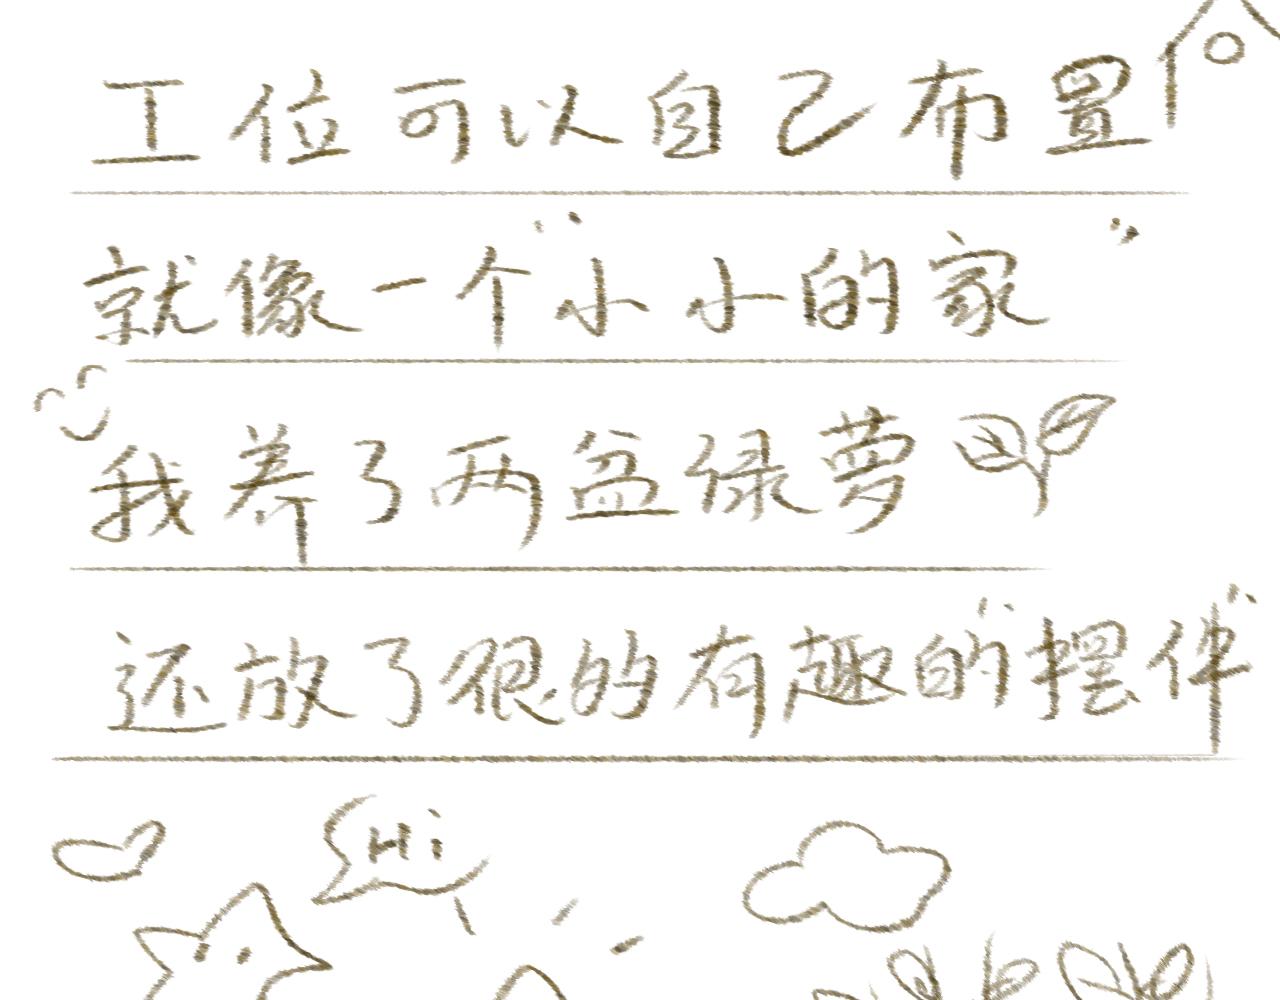 工位可以自己布置
就像一个“小小的家”
我养了两盆绿萝
还放了很的有趣的“摆件”
Hi